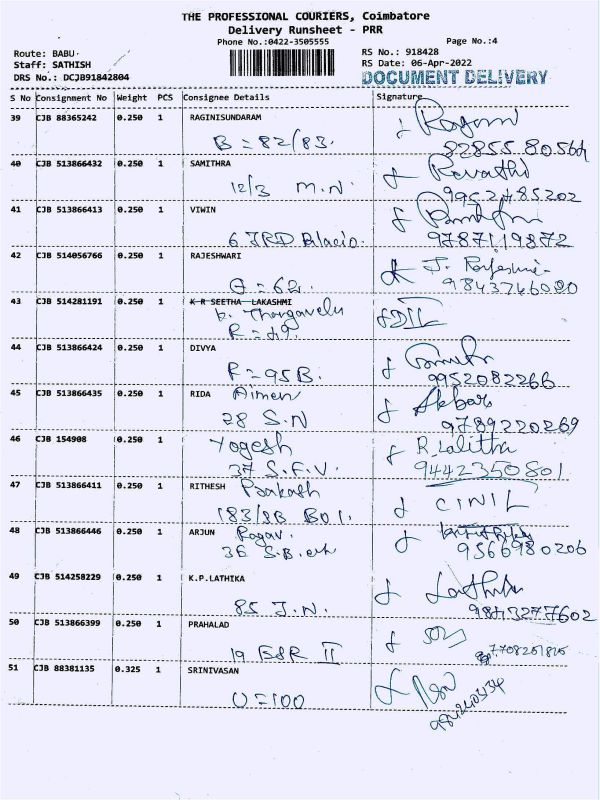 THE PROFESSIONAL COURIERS, Coimbatore
Delivery Runsheet - PRR
Phone No.:0422-3505555
Page No.:4
Route: BABU·
RS No.: 918428
Staff: SATHISH
RS Date: 06-Apr-2022
DRS No.: DCJB91842804
DOCUMENT DELIVERY
S No Consignment No Weight PCS Consignee Details Signature
39 CJB 88365242 0.250 1 RAGINISUNDARAM
B = 82/83.
40 CJB 513866432 0.250 1 SAMITHRA Revathi
12/3 M.N. 9952485202
41 CJB 513866413 0.250 1 VIWIN
6 JRD Palacio. 9787119872
42 CJB 514056766 0.250 1 RAJESHWARI
G = 62. 9843746080
43 CJB 514281191 0.250 1 K R SEETHA LAKASHMI
Thangavelu
R = 49.
44 CJB 513866424 0.250 1 DIVYA
F = 95B. 9952082266
45 CJB 513866435 0.250 1 RIDA Aimen Akbar
28 S.N 9789220269
46 CJB 154908 0.250 1 Yogesh R. Lalitha
37 S.F.V. 9442350801
47 CJB 513866411 0.250 1 RITHESH Prakash
183/3B
48 CJB 513866446 0.250 1 ARJUN Ragav.
36 S.B. 9566980206
49 CJB 514258229 0.250 1 K.P.LATHIKA Lathika
85 J.N. 9843277602
50 CJB 513866399 0.250 1 PRAHALAD
19 BSR II
51 CJB 88381135 0.325 1 SRINIVASAN
U = 100